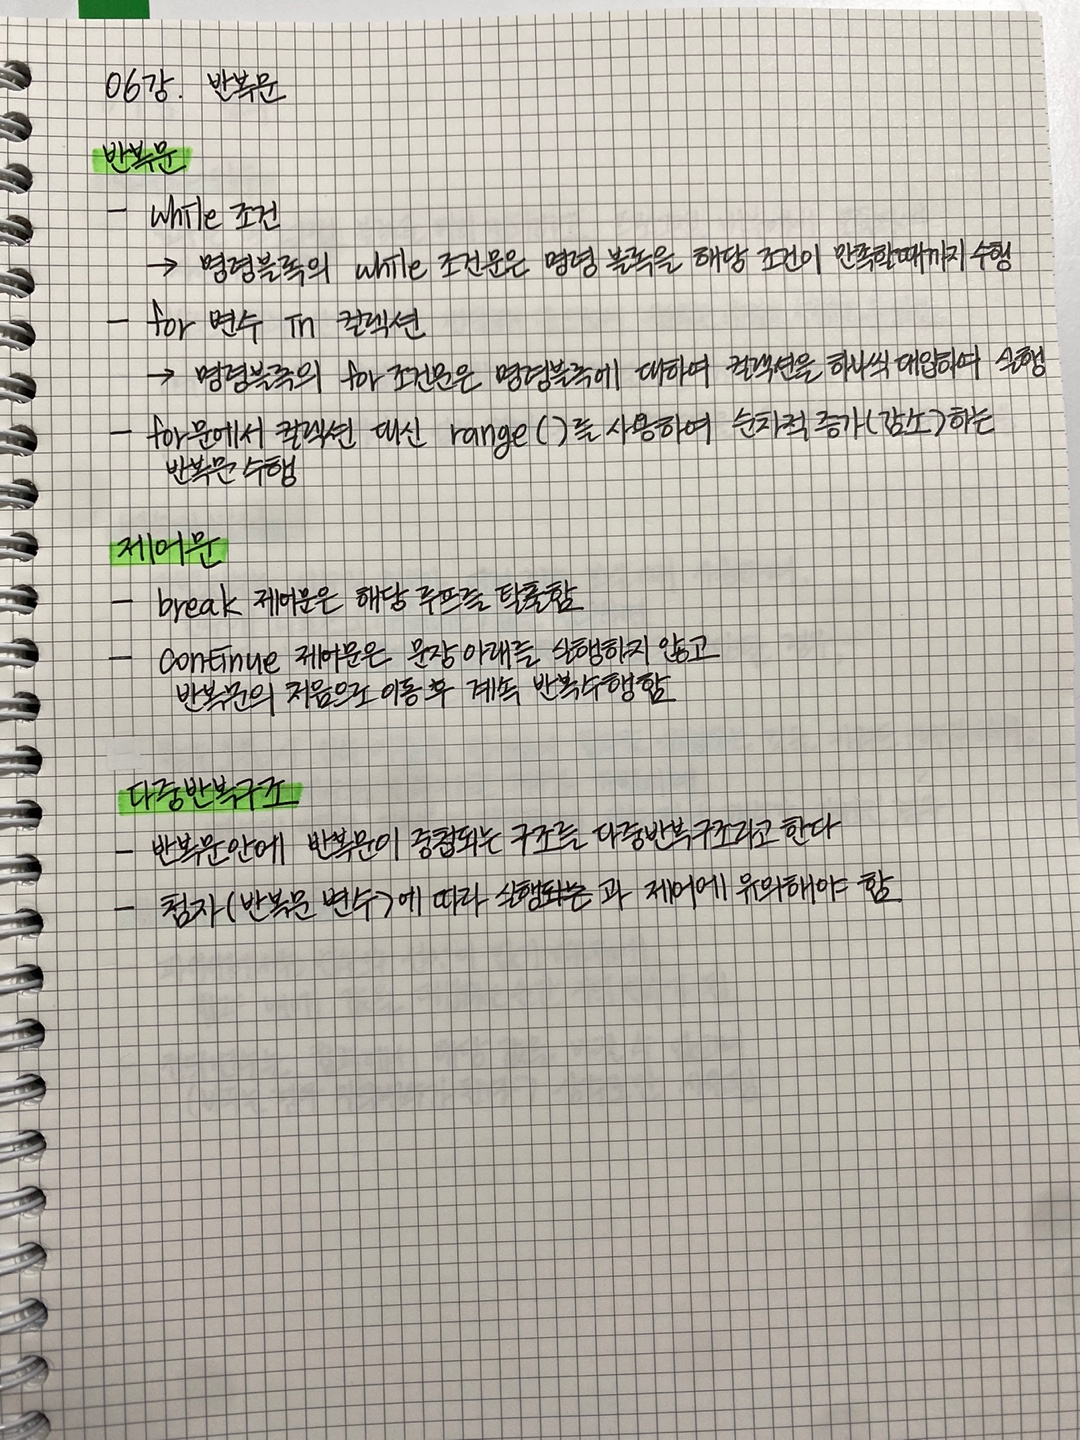 06강. 반복문
반복문
- while 조건
→ 명령블록의 while 조건문은 명령 블록을 해당 조건이 만족할때까지 수행
- for 변수 in 컬렉션
→ 명령블록의 for 조건문은 명령블록에 대하여 컬렉션을 하나씩 대입하여 실행
- for문에서 컬렉션 대신 range()를 사용하여 순차적 증가(감소)하는
반복문 수행
제어문
- break 제어문은 해당 루프를 탈출함
- continue 제어문은 문장 아래를 실행하지 않고
반복문의 처음으로 이동 후 계속 반복수행함
다중반복구조
- 반복문안에 반복문이 중첩되는 구조를 다중반복구조라고 한다
- 첨자(반복문 변수)에 따라 실행되는 과 제어에 유의해야 함